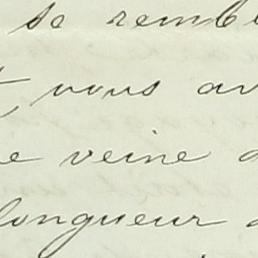 se remb
, vous av
e veine d
longueur d